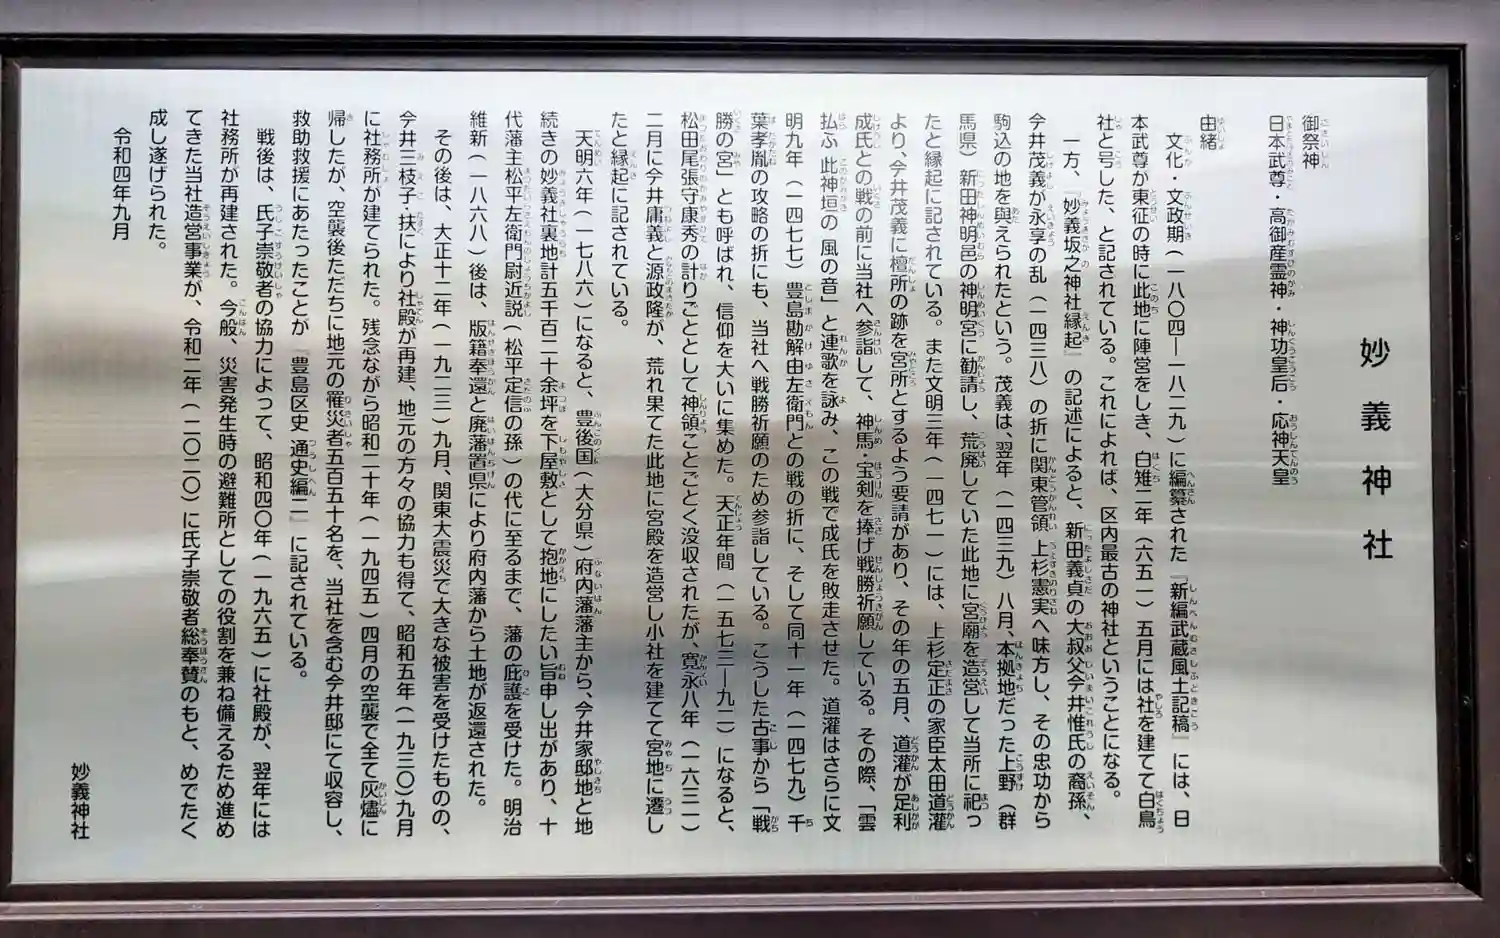 妙義神社
御祭神
日本武尊・高御産霊神・神功皇后・応神天皇
由緒
文化・文政期（一八〇四―一八二九）に編纂された『新編武蔵風土記稿』には、日
本武尊が東征の時に此地に陣営をしき、白雉二年（六五一）五月には社を建てて白鳥
社と号した、と記されている。これによれば、区内最古の神社ということになる。
一方、『妙義坂之神社縁起』の記述によると、新田義貞の大叔父今井惟氏の裔孫、
今井茂義が永享の乱（一四三八）の折に関東管領 上杉憲実へ味方し、その忠功から
駒込の地を與えられたという。茂義は、翌年（一四三九）八月、本拠地だった上野（群
馬県）新田神明邑の神明宮に勧請し、荒廃していた此地に宮廟を造営して当所に祀っ
たと縁起に記されている。また文明三年（一四七一）には、上杉定正の家臣太田道灌
より、今井茂義に檀所の跡を宮所とするよう要請があり、その年の五月、道灌が足利
成氏との戦の前に当社へ参詣して、神馬・宝剣を捧げ戦勝祈願している。その際、「雲
払ふ 此神垣の 風の音」と連歌を詠み、この戦で成氏を敗走させた。道灌はさらに文
明九年（一四七七）豊島勘解由左衛門との戦の折に、そして同十一年（一四七九）千
葉孝胤の攻略の折にも、当社へ戦勝祈願のため参詣している。こうした古事から「戦
勝の宮」とも呼ばれ、信仰を大いに集めた。天正年間（一五七三―九二）になると、
松田尾張守康秀の計りごととして神領ことごとく没収されたが、寛永八年（一六三一）
二月に今井庸義と源政隆が、荒れ果てた此地に宮殿を造営し小社を建てて宮地に遷し
たと縁起に記されている。
天明六年（一七八六）になると、豊後国（大分県）府内藩藩主から、今井家邸地と地
続きの妙義社裏地計五千百二十余坪を下屋敷として抱地にしたい旨申し出があり、十
代藩主松平左衛門尉近説（松平定信の孫）の代に至るまで、藩の庇護を受けた。明治
維新（一八六八）後は、版籍奉還と廃藩置県により府内藩から土地が返還された。
その後は、大正十二年（一九二三）九月、関東大震災で大きな被害を受けたものの、
今井三枝子扶により社殿が再建、地元の方々の協力も得て、昭和五年（一九三〇）九月
に社務所が建てられた。残念ながら昭和二十年（一九四五）四月の空襲で全て灰燼に
帰したが、空襲後ただちに地元の罹災者五百五十名を、当社を含む今井邸にて収容し、
救助救援にあたったことが『豊島区史 通史編二』に記されている。
戦後は、氏子崇敬者の協力によって、昭和四〇年（一九六五）に社殿が、翌年には
社務所が再建された。今般、災害発生時の避難所としての役割を兼ね備えるため進め
てきた当社造営事業が、令和二年（二〇二〇）に氏子崇敬者総奉賛のもと、めでたく
成し遂げられた。
令和四年九月
妙義神社